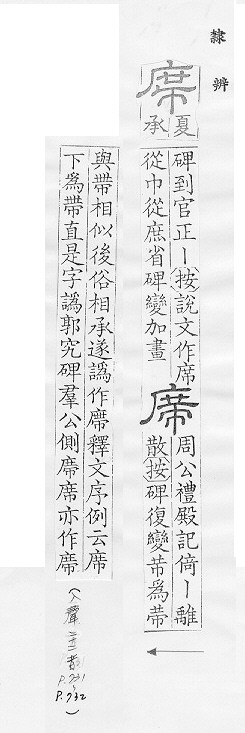 隸辨
席
夏
承
碑到官正丨按說文作席
從巾從庶省碑變加畫
席
周公禮殿記倚丨離
散按碑復變為
與帶相似後俗相承遂譌作廗釋文序例云席
下為帶直是字譌郭究碑羣公側廗席亦作廗
P.731
P.732